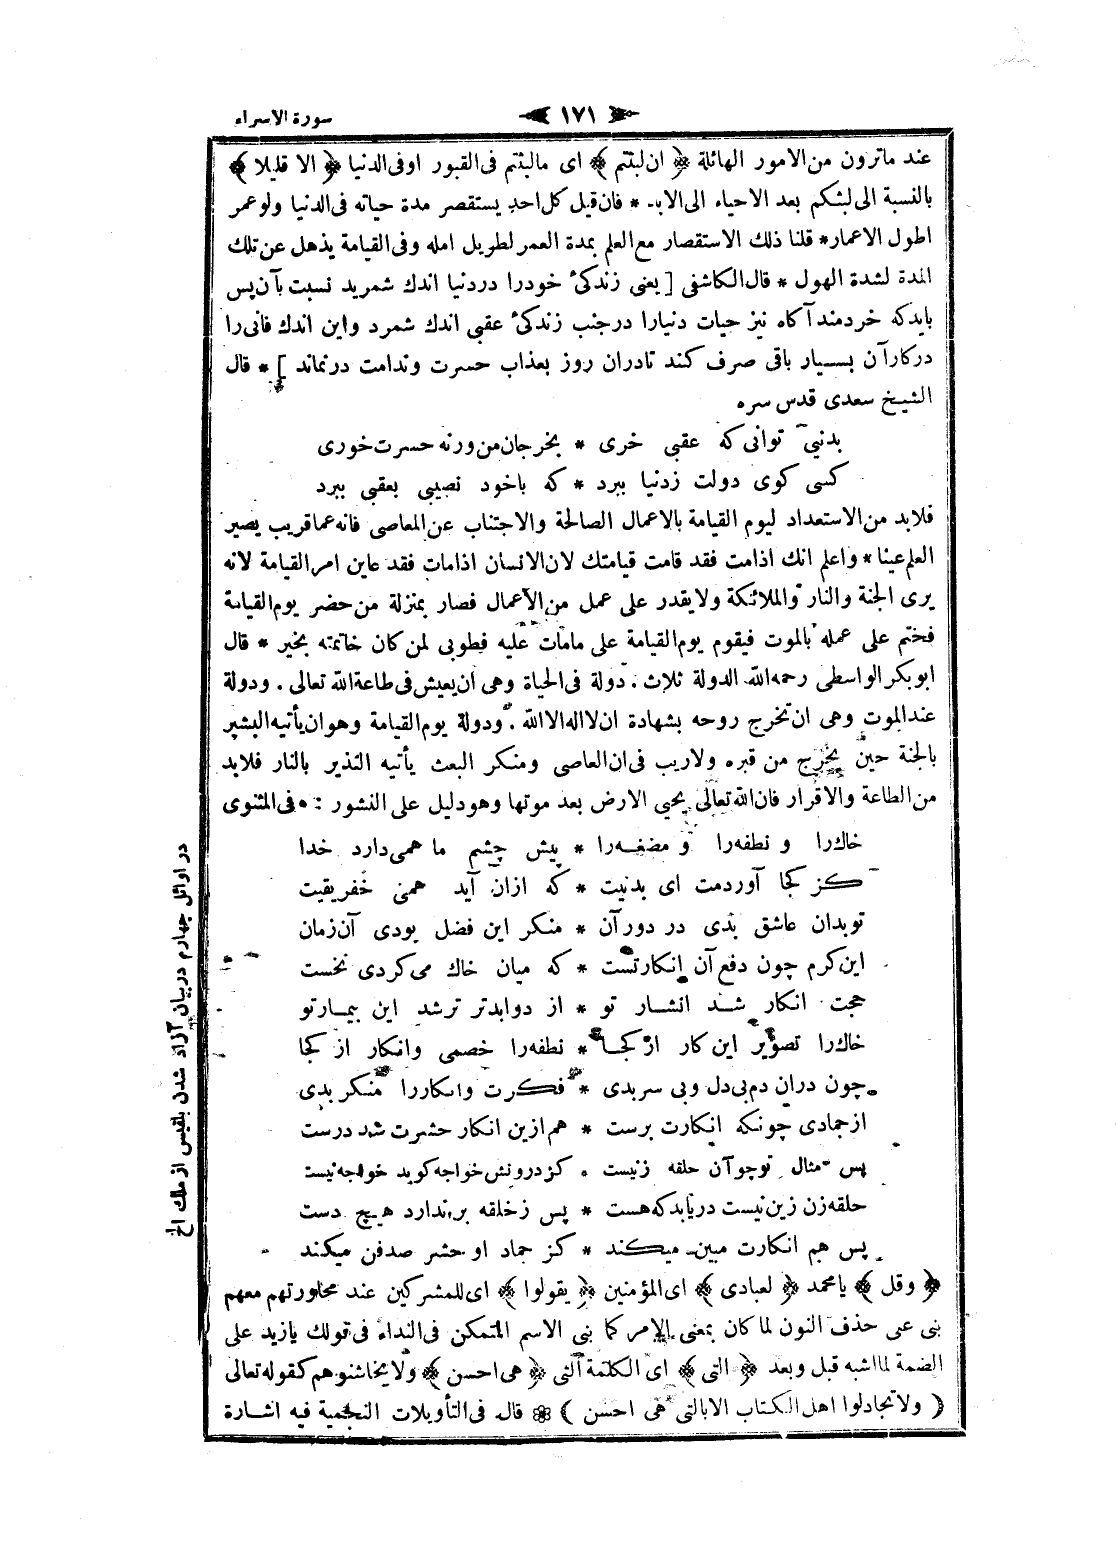 سورة الاسراء
١٧١
عند ماترون من الامور الهائلة ﴿ ان لبثتم ﴾ اى مالبثتم فى القبور اوفى الدنيا ﴿ الا قليلا ﴾
بالنسبة الى لبثكم بعد الاحياء الى الابد * فان قيل كل احد يستقصر مدة حياته فى الدنيا ولو عمر
اطول الاعمار * قلنا ذلك الاستقصار مع العلم بمدة العمر لطويل امله وفى القيامة يذهل عن تلك
المدة لشدة الهول * قال الكاشفى [ يعنى زندكئ خودرا دردنيا اندك شمريد نسبت بآن پس
بايدكه خردمند آكاه نيز حيات دنيارا درجنب زندكئ عقبى اندك شمرد واين اندك فانى را
دركار آن بسيار باقى صرف كند تادران روز بعذاب حسرت وندامت درنماند ] * قال
الشيخ سعدى قدس سره
بدنيى توانى كه عقبى خرى * بخر جان من ورنه حسرت خورى
كسى كوى دولت زدنيا ببرد * كه باخود نصيبى بعقبى ببرد
فلابد من الاستعداد ليوم القيامة بالاعمال الصالحة والاجتناب عن المعاصى فانه عما قريب يصير
العلم عينا * واعلم انك اذامت فقد قامت قيامتك لان الانسان اذامات فقد عاين امر القيامة لانه
يرى الجنة والنار والملائكة ولا يقدر على عمل من الاعمال فصار بمنزلة من حضر يوم القيامة
فختم على عمله بالموت فيقوم يوم القيامة على مامات عليه فطوبى لمن كان خاتمته بخير * قال
ابوبكر الواسطى رحمه الله الدولة ثلاث . دولة فى الحياة وهى ان يعيش فى طاعة الله تعالى . ودولة
عند الموت وهى ان تخرج روحه بشهادة ان لا اله الا الله . ودولة يوم القيامة وهو ان يأتيه البشير
بالجنة حين يخرج من قبره ولاريب فى ان العاصى ومنكر البعث يأتيه النذير بالنار فلابد
من الطاعة والاقرار فان الله تعالى يحيى الارض بعد موتها وهو دليل على النشور : وفى المثنوى
خاك‌را و نطفه‌را و مضغه‌را * پيش چشم ما همى‌دارد خدا
كز كجا آوردمت اى بدنيت * كه ازان آيد همى خفريقيت
توبدان عاشق بدى در دور آن * منكر اين فضل بودى آن زمان
اين كرم چون دفع آن انكارتست * كه ميان خاك مى‌كردى نخست
حجت انكار شد انشار تو * از دوا بدتر شد اين بيمار تو
خاك‌را تصوير اين كار از كجا * نطفه‌را خصمى وانكار از كجا
چون دران دم بى‌دل وبى سر بدى * فكرت وانكاررا منكر بدى
از جمادى چونكه انكارت برست * هم ازين انكار حشرت شد درست
پس مثال توچو آن حلقه زنيست * كز درونش خواجه كويد خواجه نيست
حلقه زن زين نيست دريابد كه هست * پس زحلقه برندارد هيچ دست
پس هم انكارت مبين ميكند * كز جماد او حشر صد فن ميكند
﴿ وقل ﴾ يامحمد ﴿ لعبادى ﴾ اى المؤمنين ﴿ يقولوا ﴾ اى للمشركين عند محاورتهم معهم
بنى على حذف النون لما كان بمعنى الامر كما بنى الاسم المتمكن فى النداء فى قولك يازيد على
الضمة لما اشبه قبل وبعد ﴿ التى ﴾ اى الكلمة التى ﴿ هى احسن ﴾ ولا يخاشنوهم كقوله تعالى
( ولا تجادلوا اهل الكتاب الا بالتى هى احسن ) * قال فى التأويلات النجمية فيه اشارة
در اوائل چهارم دربيان آزاد شدن بلقيس از ملك الخ